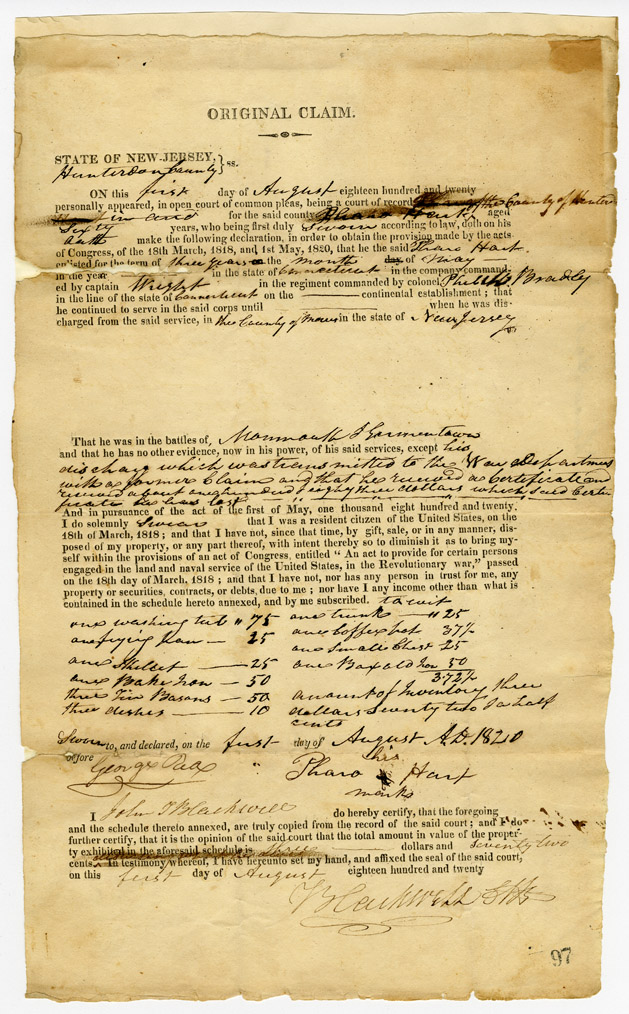 ORIGINAL CLAIM.
STATE OF NEW-JERSEY, } ss.
Hunterdon County
ON this first day of August eighteen hundred and twenty
personally appeared, in open court of common pleas, being a court of record of the County of Hunter
don in and for the said county Pharo Hart, aged
Sixty years, who being first duly Sworn according to law, doth on his
oath make the following declaration, in order to obtain the provision made by the acts
of Congress, of the 18th March, 1818, and 1st May, 1820, that he the said Pharo Hart
enlisted for the term of three years on the month day of May
in the year in the state of Connecticut in the company command-
ed by captain Wright in the regiment commanded by colonel Philip Bradley
in the line of the state of Connecticut on the continental establishment; that
he continued to serve in the said corps until when he was dis-
charged from the said service, in the County of Morris in the state of New Jersey
That he was in the battles of, Monmouth & Germentown
and that he has no other evidence, now in his power, of his said services, except his
discharge which was transmitted to the War Department
with a former Claim and that he received a Certificate and
received about one hundred & eighty three dollars which said Certi
ficate he has lost
And in pursuance of the act of the first of May, one thousand eight hundred and twenty.
I do solemnly Swear that I was a resident citzen of the United States, on the
18th of March, 1818; and that I have not, since that time, by gift, sale, or in any manner, dis-
posed of my property, or any part thereof, with intent thereby so to diminish it as to bring my-
self within the provisions of an act of Congress, entitled "An act to provide for certain persons
engaged in the land and naval service of the United States, in the Revolutionary war," passed
on the 18th day of March, 1818; and that I have not, nor has any person in trust for me, any
property or securities, contracts, or debts, due to me; nor have I any income other than what is
contained in the schedule hereto annexed, and by me subscribed. to wit
one washing tub " 75 one trunk " 25
one frying Pan 25 one Coffee pot 37½
one Small Chest 25
one Skillet 25 one Box old Iron 50
one Bake Iron 50 3.72½
three Tin Basons 50 amount of Inventory three
three dishes 10 dollars seventy two & a half
cents
Sworn to, and declared, on the first day of August A.D. 1820
before his
George Rea Pharo Hart
mark
I John T Blackwell do hereby certify, that the foregoing
and the schedule thereto annexed, are truly copied from the record of the said court; and I do
further certify, that it is the opinion of the said court that the total amount in value of the proper-
ty exhibited in the aforesaid schedule is three dollars and seventy two
cents. In testimony whereof, I have hereunto set my hand, and affixed the seal of the said court,
on this first day of August eighteen hundred and twenty
Blackwell Clk
97